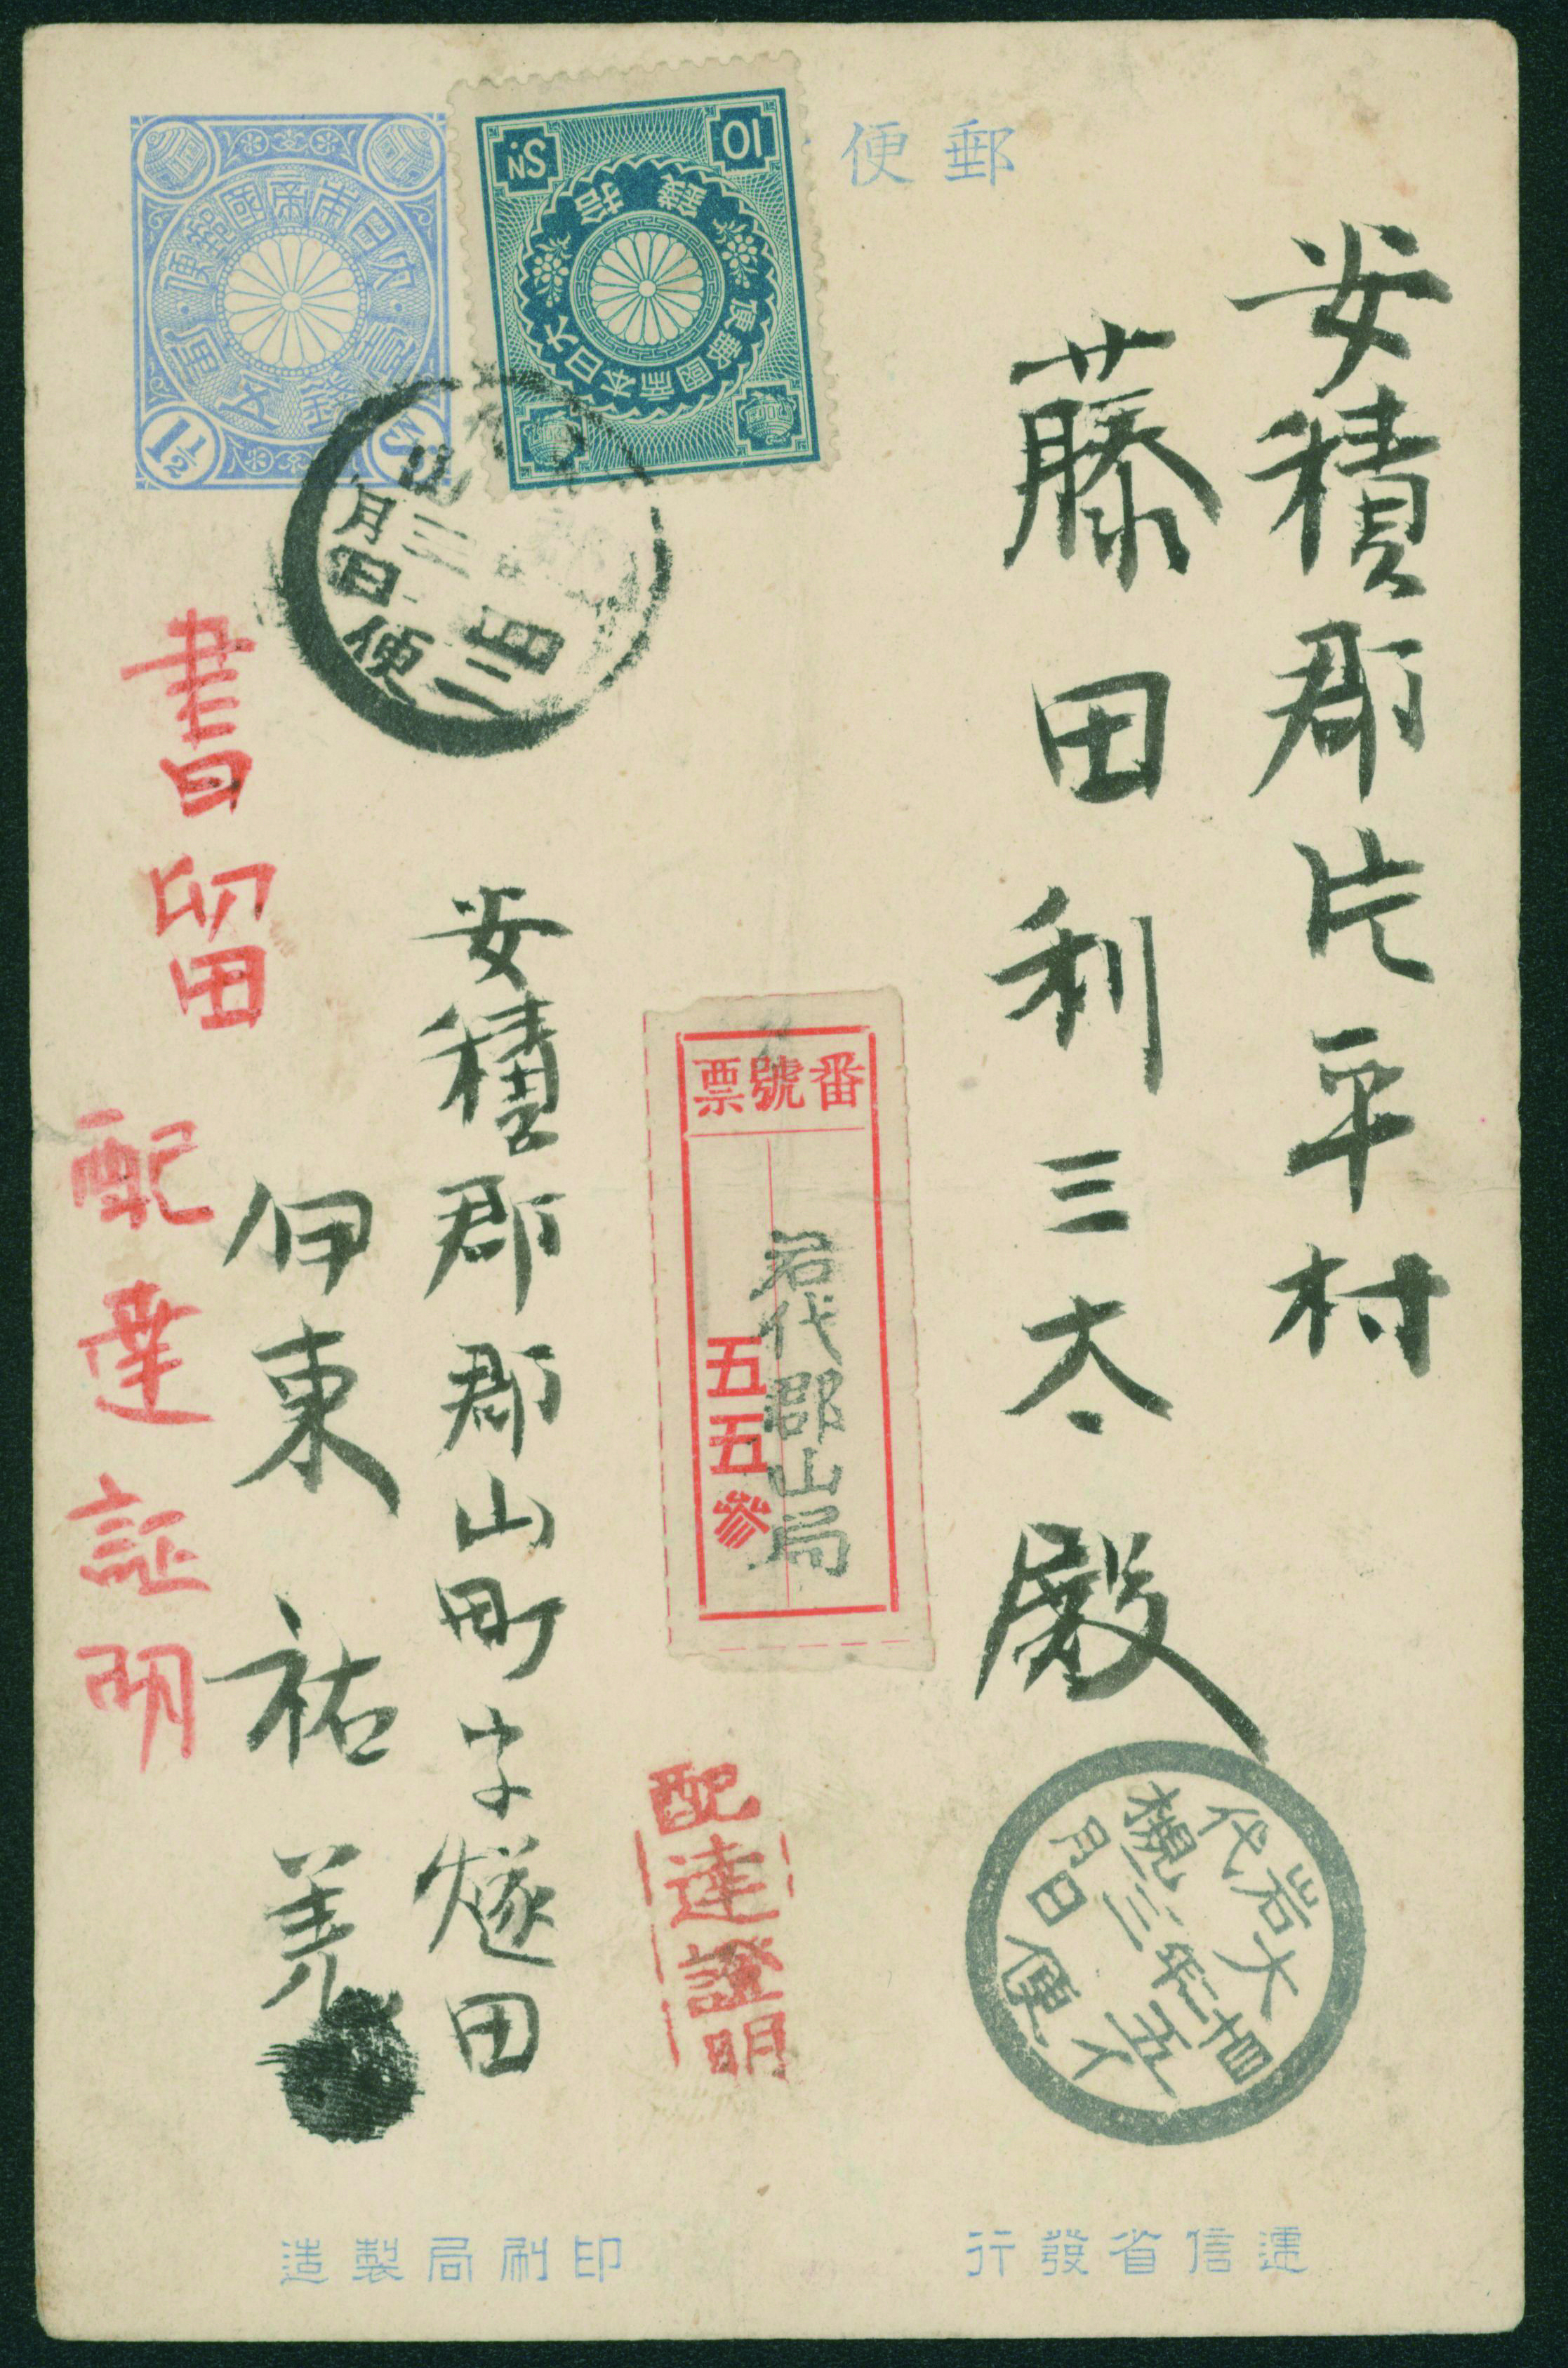 郵便
安積郡片平村
藤田利三太殿
番號票
岩代郡山局
五五參
配達證明
安積郡郡山町字燧田
伊東祐
書留
配達証明
10
SN.
拾錢
大日本帝國郵便
大日本帝國郵便
壹錢五厘
1½
Sn
月日便
岩代
大槻
三年
五
月日便
イ
遞信省發行
印刷局製造